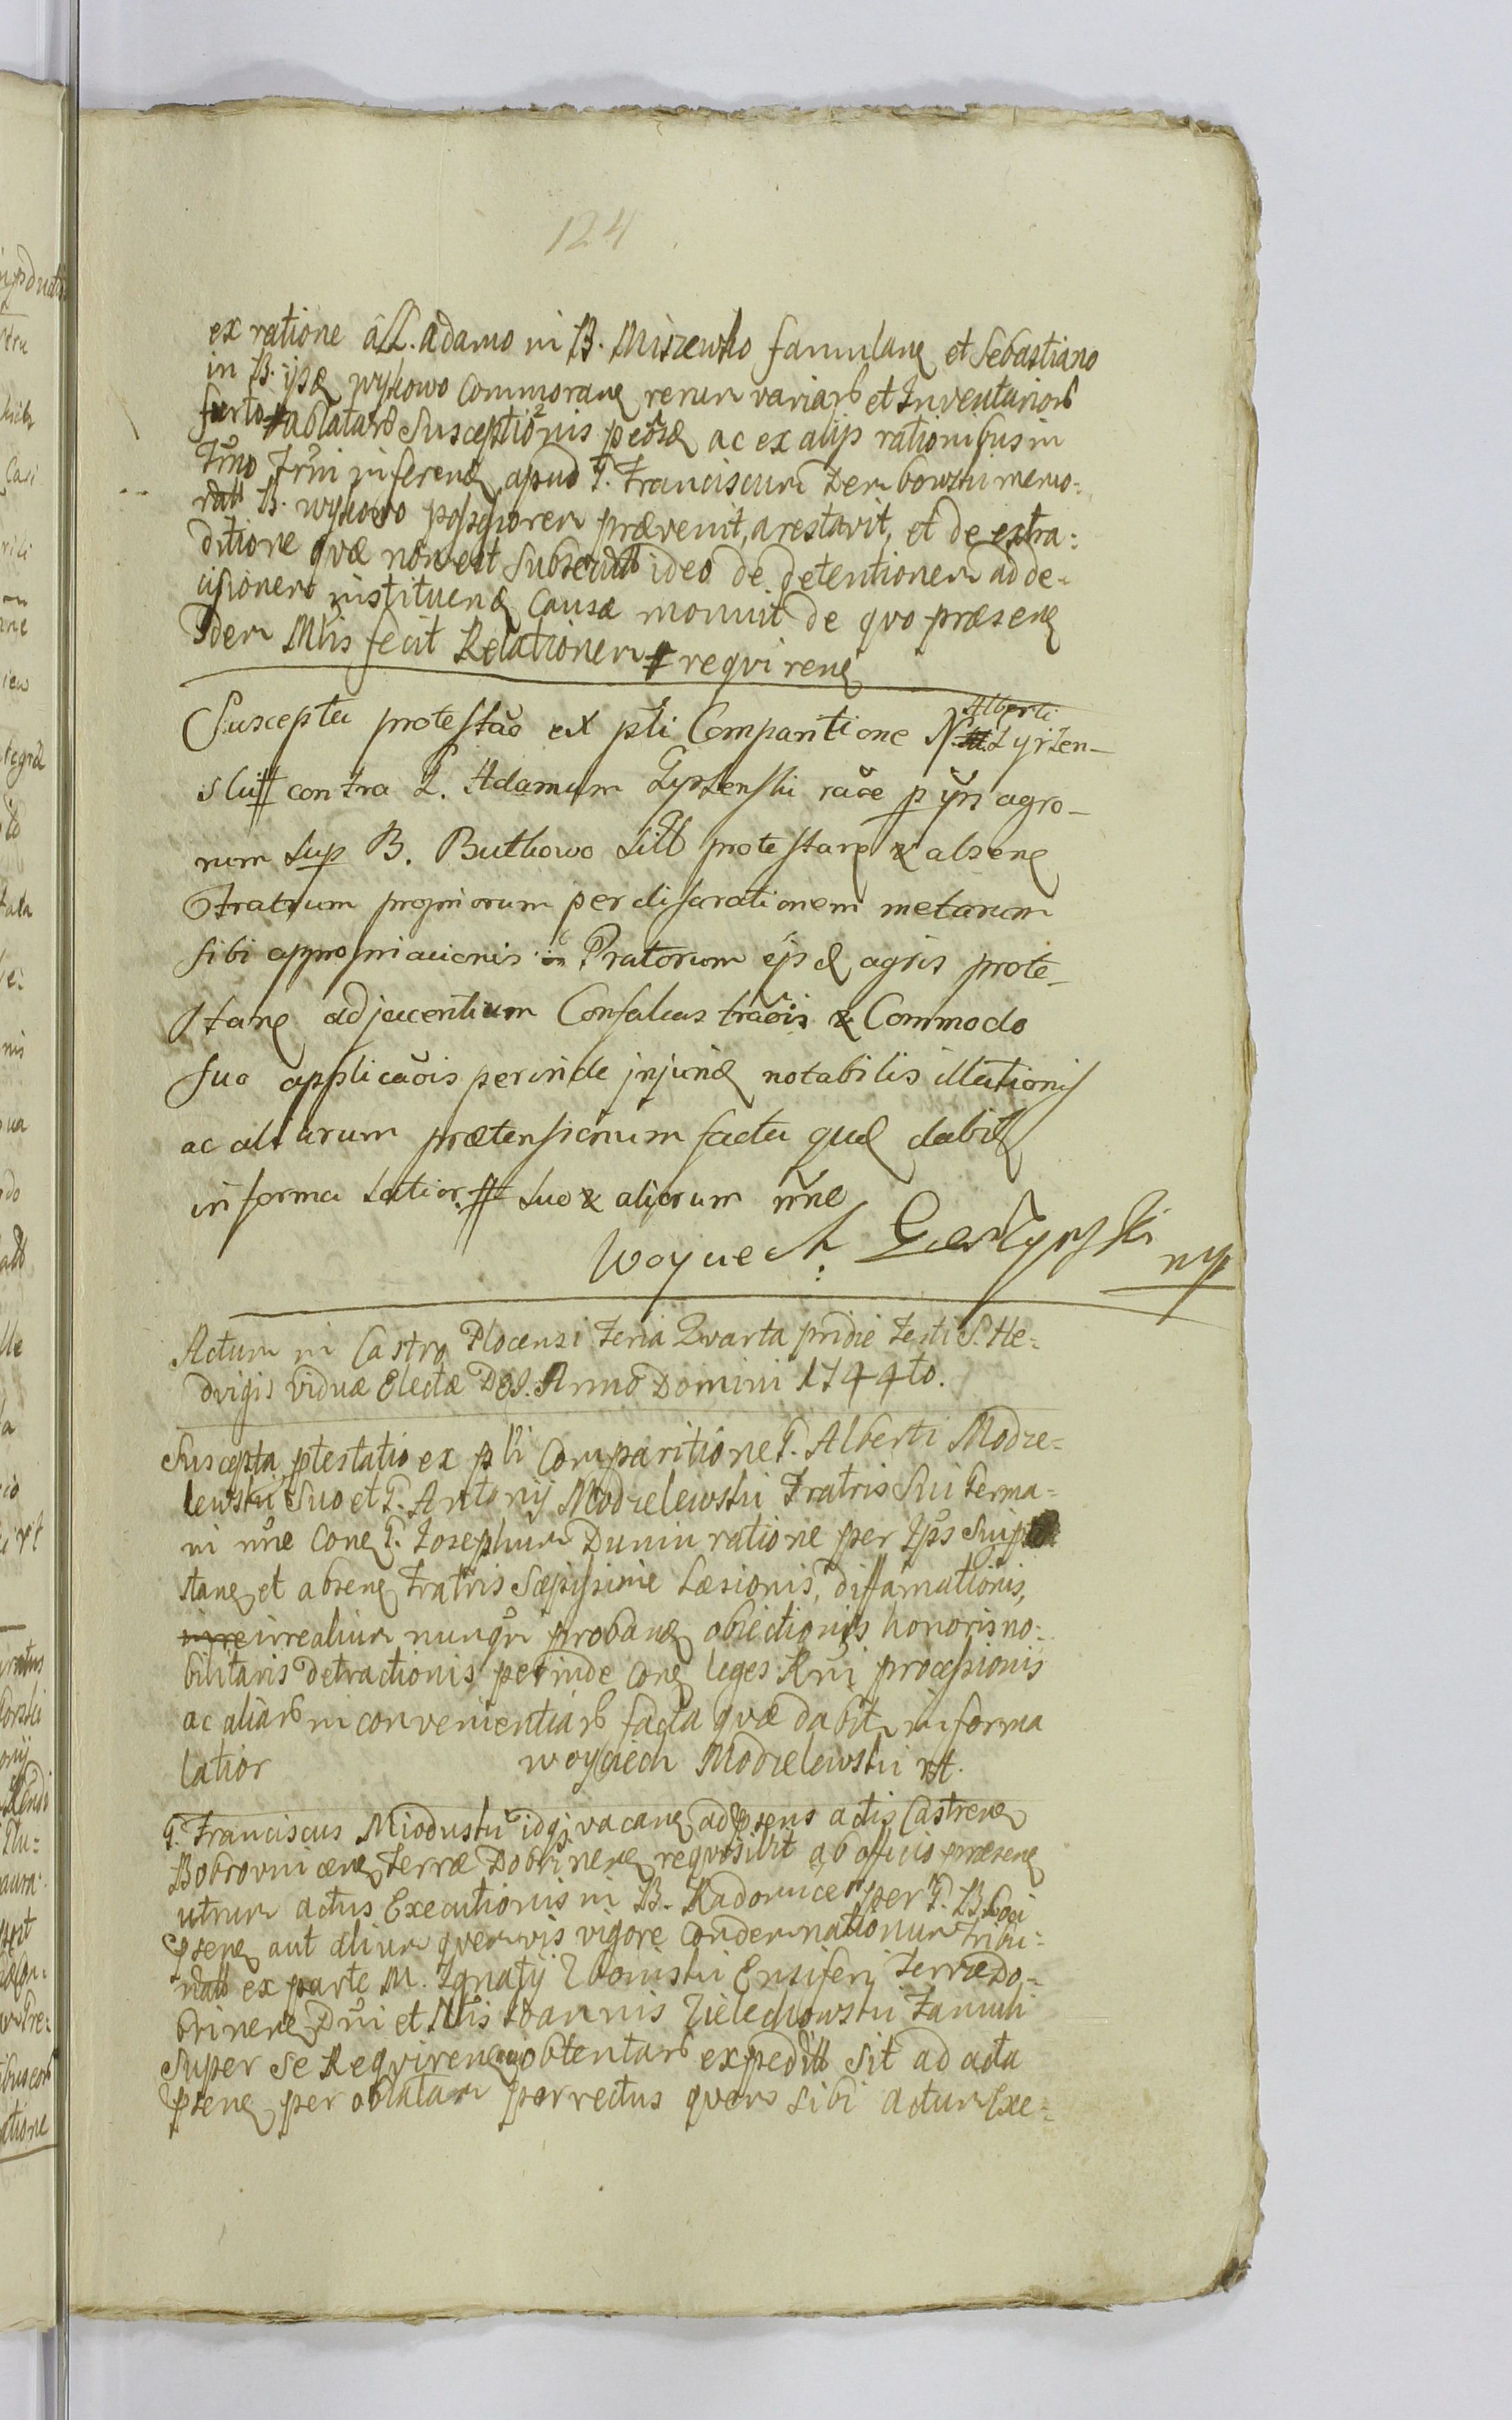 124
ex ratione ab L. Adamo in B. Miszewko famulanę et Sebastiano
in B. ijsę wykowo Commoranę rerum variarb et Inventariorb
furto ablatarb Susceptionis peosę ac ex alijs rationibus in
Tmo Trni inferenę apud G. Franciscum Dembowski memo:
ratt B. wykowo possessorem prævenit, arestavit, et de extra:
ditione qvæ non est Subsecutt ideo de detentionem ad de-
cisionem instituenę Causæ monuit de qvo præsenę
Idem Mlis fecit Relationem reqvirenę
Suscepta protestao ex pli Comparitione N. Alberti Zyrzen-
ski contra L. Adamum raoe p ijn agro-
rum sup B. Buthowo Sitt protestanę & absenę
Fratrum propriorum per dissarationem metarum
sibi appropriacionis Pratorum ejsdę agris prote-
stanę adjacentium Confalcas traois & Commodo
suo applicaois perinde injurię notabilis illationis
ac aliarum prætensionum facta quę dabitę
in forma latior suo & aliorum nne
Woyciech mp
Actum in Castro Plocensi Feria Qvarta pridie Festi S. He=
dvigis viduæ Electæ Dei. Anno Domini 1744to.
Suscepta ptestatio ex pli Comparitione G. Alberti Modze=
lewski Suo et G. Antonij Modzelewski Fratris Sui Germa=
ni nne Conę G. Josephum Dunin ratione per Ips Suipte
stanę et absenę Fratris Sæpissime Læsionis, diffamationis,
irrealium nunqm probanę obiectionis honoris no:
bilitaris detractionis perinde Conę leges Rni processionis
ac aliarb inconvenientiarb facta qvæ dabit in forma
latior woyciech Modzelewski mp.
G. Franciscus Mioduski idqj vacanę ad psens actis Castrenę
Bobrovnicenę Terræ Dobrinenę reqvisivit ab officio præsenę
utrum actus Executionis in B. Radomice per G. B. Loci
psenę aut alium qvemvis vigore Condemnationum Tribu:
natt ex parte M. Ignatij Zboinski Ensiferi Terræ Do=
brinenę Dni et Nlis Ioannis Zielechowski Famuli
Super Se Reqvirenę obtentarb expeditt Sit ad acta
psenę per oblatam porrectus qvem sibi actum Exe=